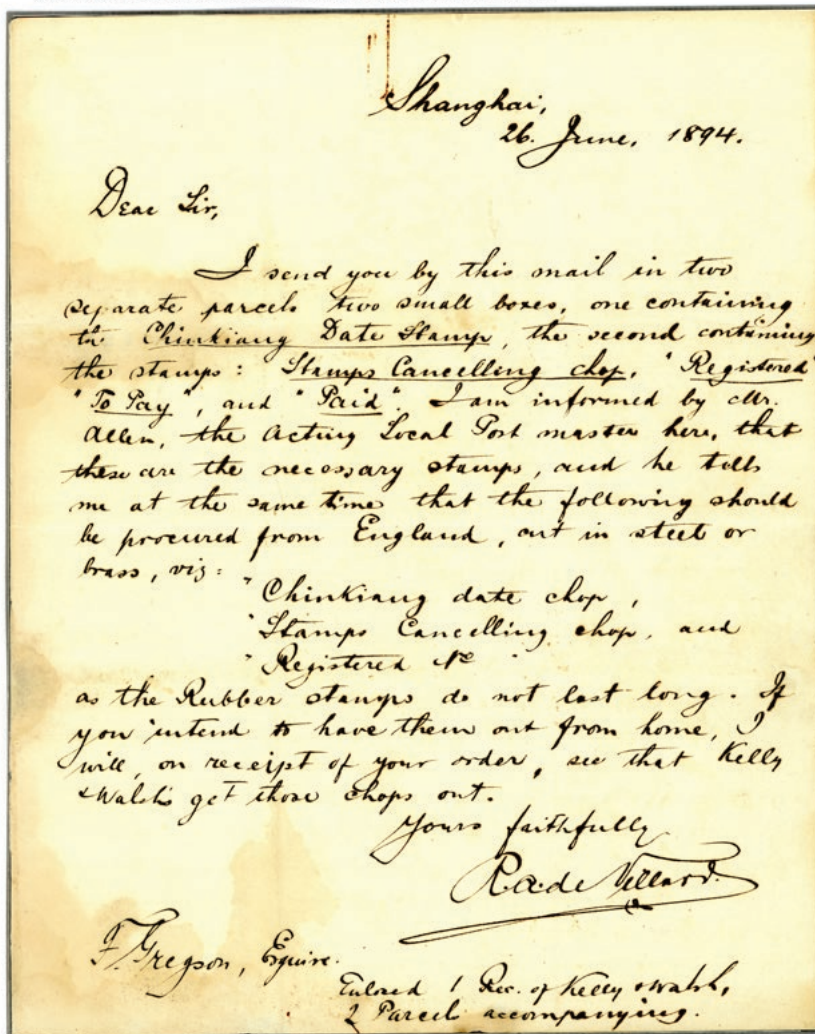 Shanghai,
26. June, 1894.
Dear Sir,
I send you by this mail in two
separate parcels two small boxes, one containing
the Chinkiang Date Stamp, the second containing
the stamps: Stamps Cancelling chop, "Registered"
"To Pay", and "Paid". I am informed by Mr.
Allen, the Acting Local Post master here, that
these are the necessary stamps, and he tells
me at the same time that the following should
be procured from England, cut in steel or
brass, viz:
"Chinkiang date chop,
"Stamps Cancelling chop, and
"Registered No "
as the Rubber stamps do not last long. If
you intend to have them out from home, I
will, on receipt of your order, see that Kelly
& Walsh get those chops out.
Yours faithfully
R.A. de Villard.
F. Gregson, Esquire.
Enclosed 1 Rec. of Kelly & Walsh,
2 Parcels accompanying.